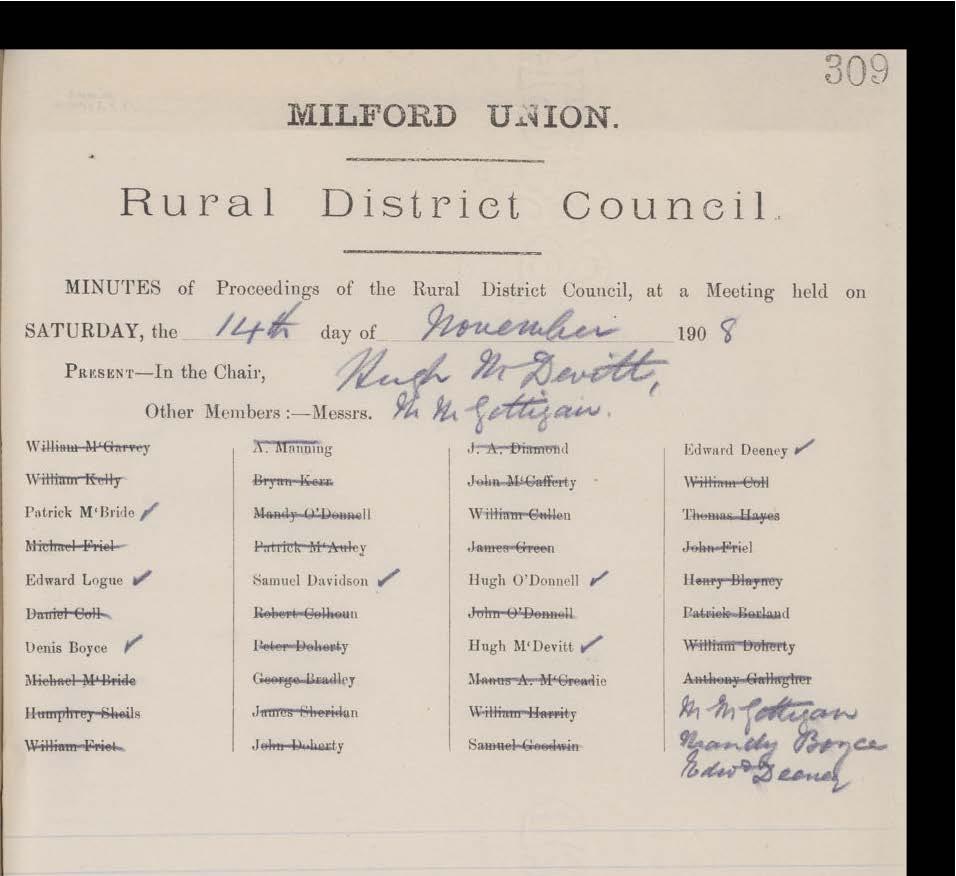 309
MILFORD UNION.
Rural District Council.
MINUTES of Proceedings of the Rural District Council, at a Meeting held on
SATURDAY, the 14th day of November 1908
PRESENT—In the Chair, Hugh McDevitt,
Other Members :—Messrs. M McGettigan.
William M‘Garvey
William Kelly
Patrick M‘Bride ✓
Michael Friel
Edward Logue ✓
Daniel Coll
Denis Boyce ✓
Michael M‘Bride
Humphrey Sheils
William Friel
A. Manning
Bryan Kerr
Mandy O’Donnell
Patrick M‘Auley
Samuel Davidson ✓
Robert Colhoun
Peter Doherty
George Bradley
James Sheridan
John Doherty
J. A. Diamond
John M‘Cafferty
William Cullen
James Green
Hugh O’Donnell ✓
John O’Donnell
Hugh M‘Devitt ✓
Manus A. M‘Creadie
William Harrity
Samuel Goodwin
Edward Deeney ✓
William Coll
Thomas Hayes
John Friel
Henry Blayney
Patrick Borland
William Doherty
Anthony Gallagher
M McGettigan
Mandy Boyce
Edwd Deeney